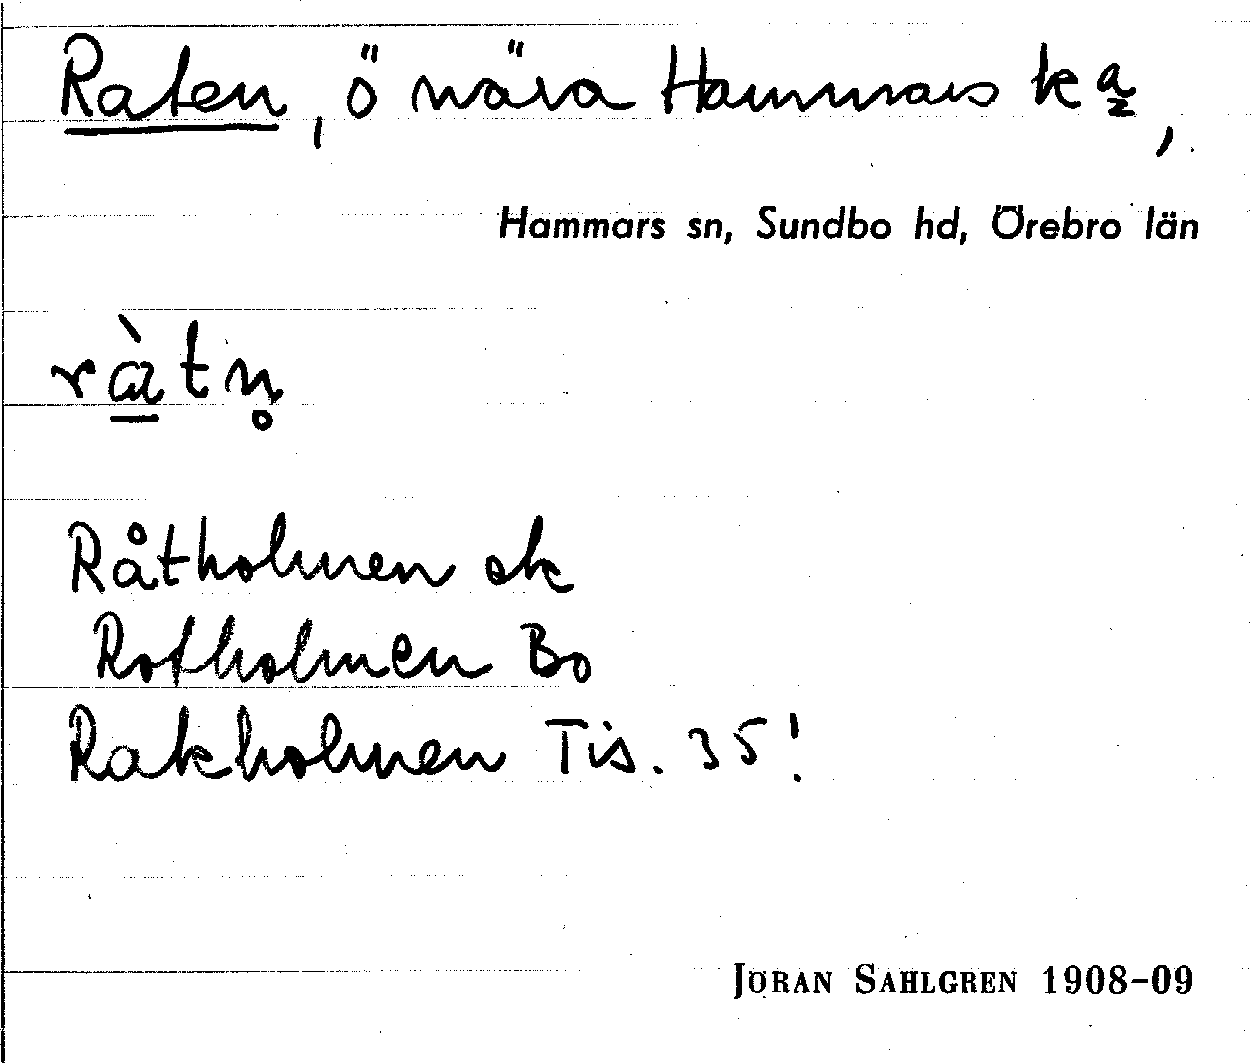 Raten, ö nära Hammars ka,
Hammars sn, Sundbo hd, Örebro län
ràtn̥
Råtholmen ek
Rotholmen Bo
Rakholmen Tis. 35!
JÖRAN SAHLGREN 1908-09